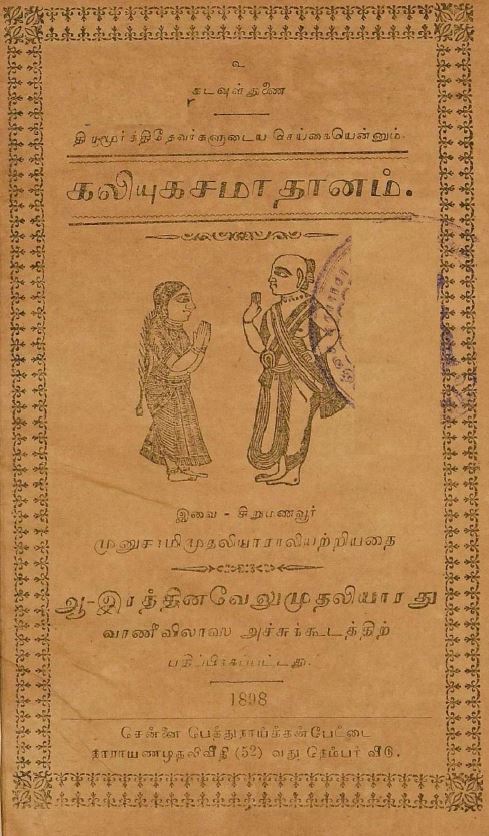 உ
கடவுள்துணை
திருமூர்த்திதேவர்களுடைய செய்கையென்னும்
கலியுகசமாதானம்.
இவை - சிறுமணவூர்
முனுசாமிமுதலியாராலியற்றியதை
ஆ-இரத்தினவேலுமுதலியாரது
வாணீவிலாஸ அச்சுக்கூடத்திற்
பதிப்பிக்கப்பட்டது.
1898
சென்னை பெத்துநாய்க்கன்பேட்டை
நாராயணமுதலிவீதி (52) வது நெம்பர் வீடு.